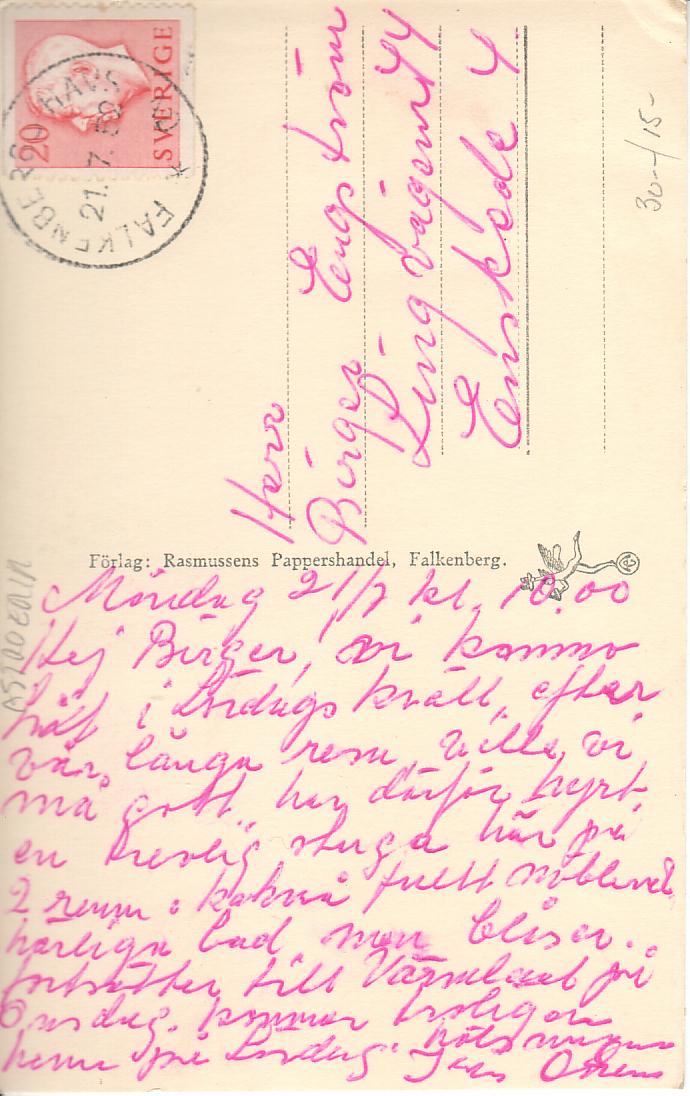 20
SVERIGE
FALKENBERG HAVSBAD
21.7.58
30-/15-
Herr
Birger Engström
Ling vägen 144
Enskede 4
Förlag: Rasmussens Pappershandel, Falkenberg.
Måndag 21/7 kl. 10.00
Hej Birger, vi kommo
hit i Lördags kväll, efter
vår långa resa, ville vi
må gott, har därför hyrt
en trevlig stuga här på
2 rum o kokvrå fullt möblerat
härliga bad men blåser.
fortsätter till Värmland på
Onsdag. kommer troligen
hem på Lördag. hälsningar